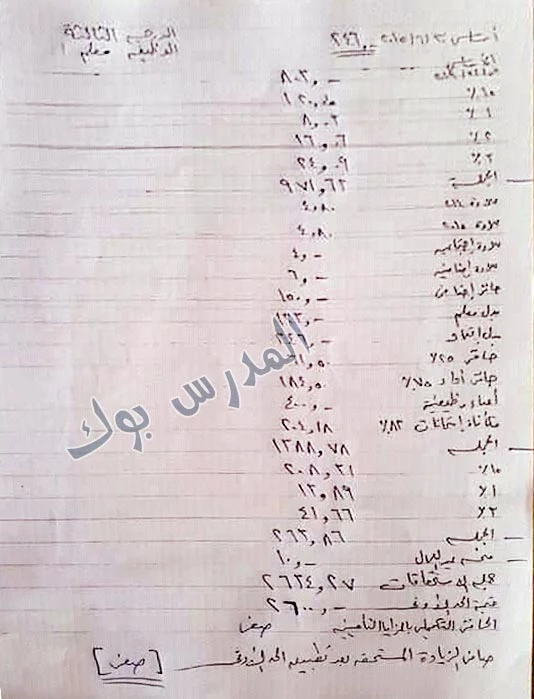 الدرجه الثالثة
الوظيفه معلم ا
أساسى ٢٠١٥/٦/٣٠ ٢٤٦٫-
الأساسى ٨٠٣٫-
١٥٪ ١٢٠٫٤٥
١٪ ٨٫٠٣
٢٪ ١٦٫٠٦
٣٪ ٢٤٫٠٩
الجملة ٩٧١٫٦٣
علاوة ٤٫٨٠
علاوة ٢٠١٥ ٤٫٨٠
علاوة إجتماعيه ٤٫-
علاوة إضافية ٦٫-
حافز إضافى ١٥٠٫-
بدل معلم
بدل اعتماد
حافز ٢٥٪ ٦١٫٥٠
حافز أداء ٧٥٪ ١٨٤٫٥٠
أعباء وظيفية ٤٠٠٫-
مكافأة إمتحانات ٨٣٪ ٢٠٤٫١٨
الجملة ١٣٨٨٫٧٨
١٥٪ ٢٠٨٫٣١
١٪ ١٣٫٨٩
٣٪ ٤١٫٦٦
الجملة ٢٦٣٫٨٦
منحة عيد العمال ١٠٫-
جملة الاستحقاقات ٢٦٣٤٫٢٧
قيمة الحد الأدنى ٢٦٠٠٫-
الحافز التكميلى بالمزايا التأمينية صفر
صافى الزيادة المستحقه بعد تطبيق الحد الأدنى [صفر]
المدرس بوك